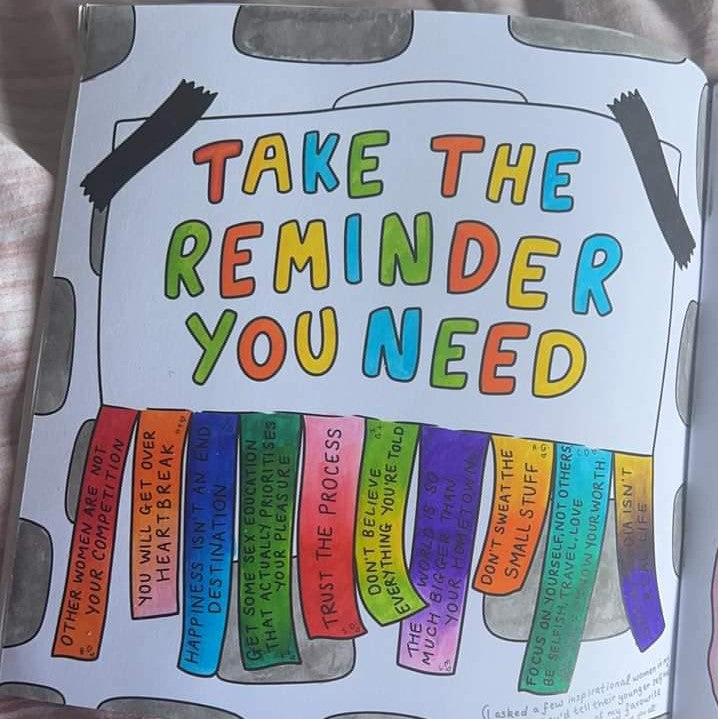 TAKE THE
REMINDER
YOU NEED
OTHER WOMEN ARE NOT
YOUR COMPETITION
YOU WILL GET OVER
HEARTBREAK
HAPPINESS ISN'T AN END
DESTINATION
GET SOME SEX-EDUCATION
THAT ACTUALLY PRIORITISES
YOUR PLEASURE
TRUST THE PROCESS
DON'T BELIEVE
EVERYTHING YOU'RE TOLD
THE WORLD IS SO
MUCH BIGGER THAN
YOUR HOMETOWN
DON'T SWEAT THE
SMALL STUFF
FOCUS ON YOURSELF, NOT OTHERS
BE SELFISH, TRAVEL, LOVE
KNOW YOUR WORTH
ISN'T
LIFE
(I asked a few inspirational women
tell their younger
my favourite